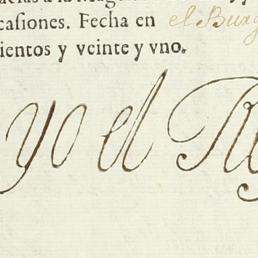 casiones. Fecha en el Burg
ientos y veinte y vno.
yo el Re